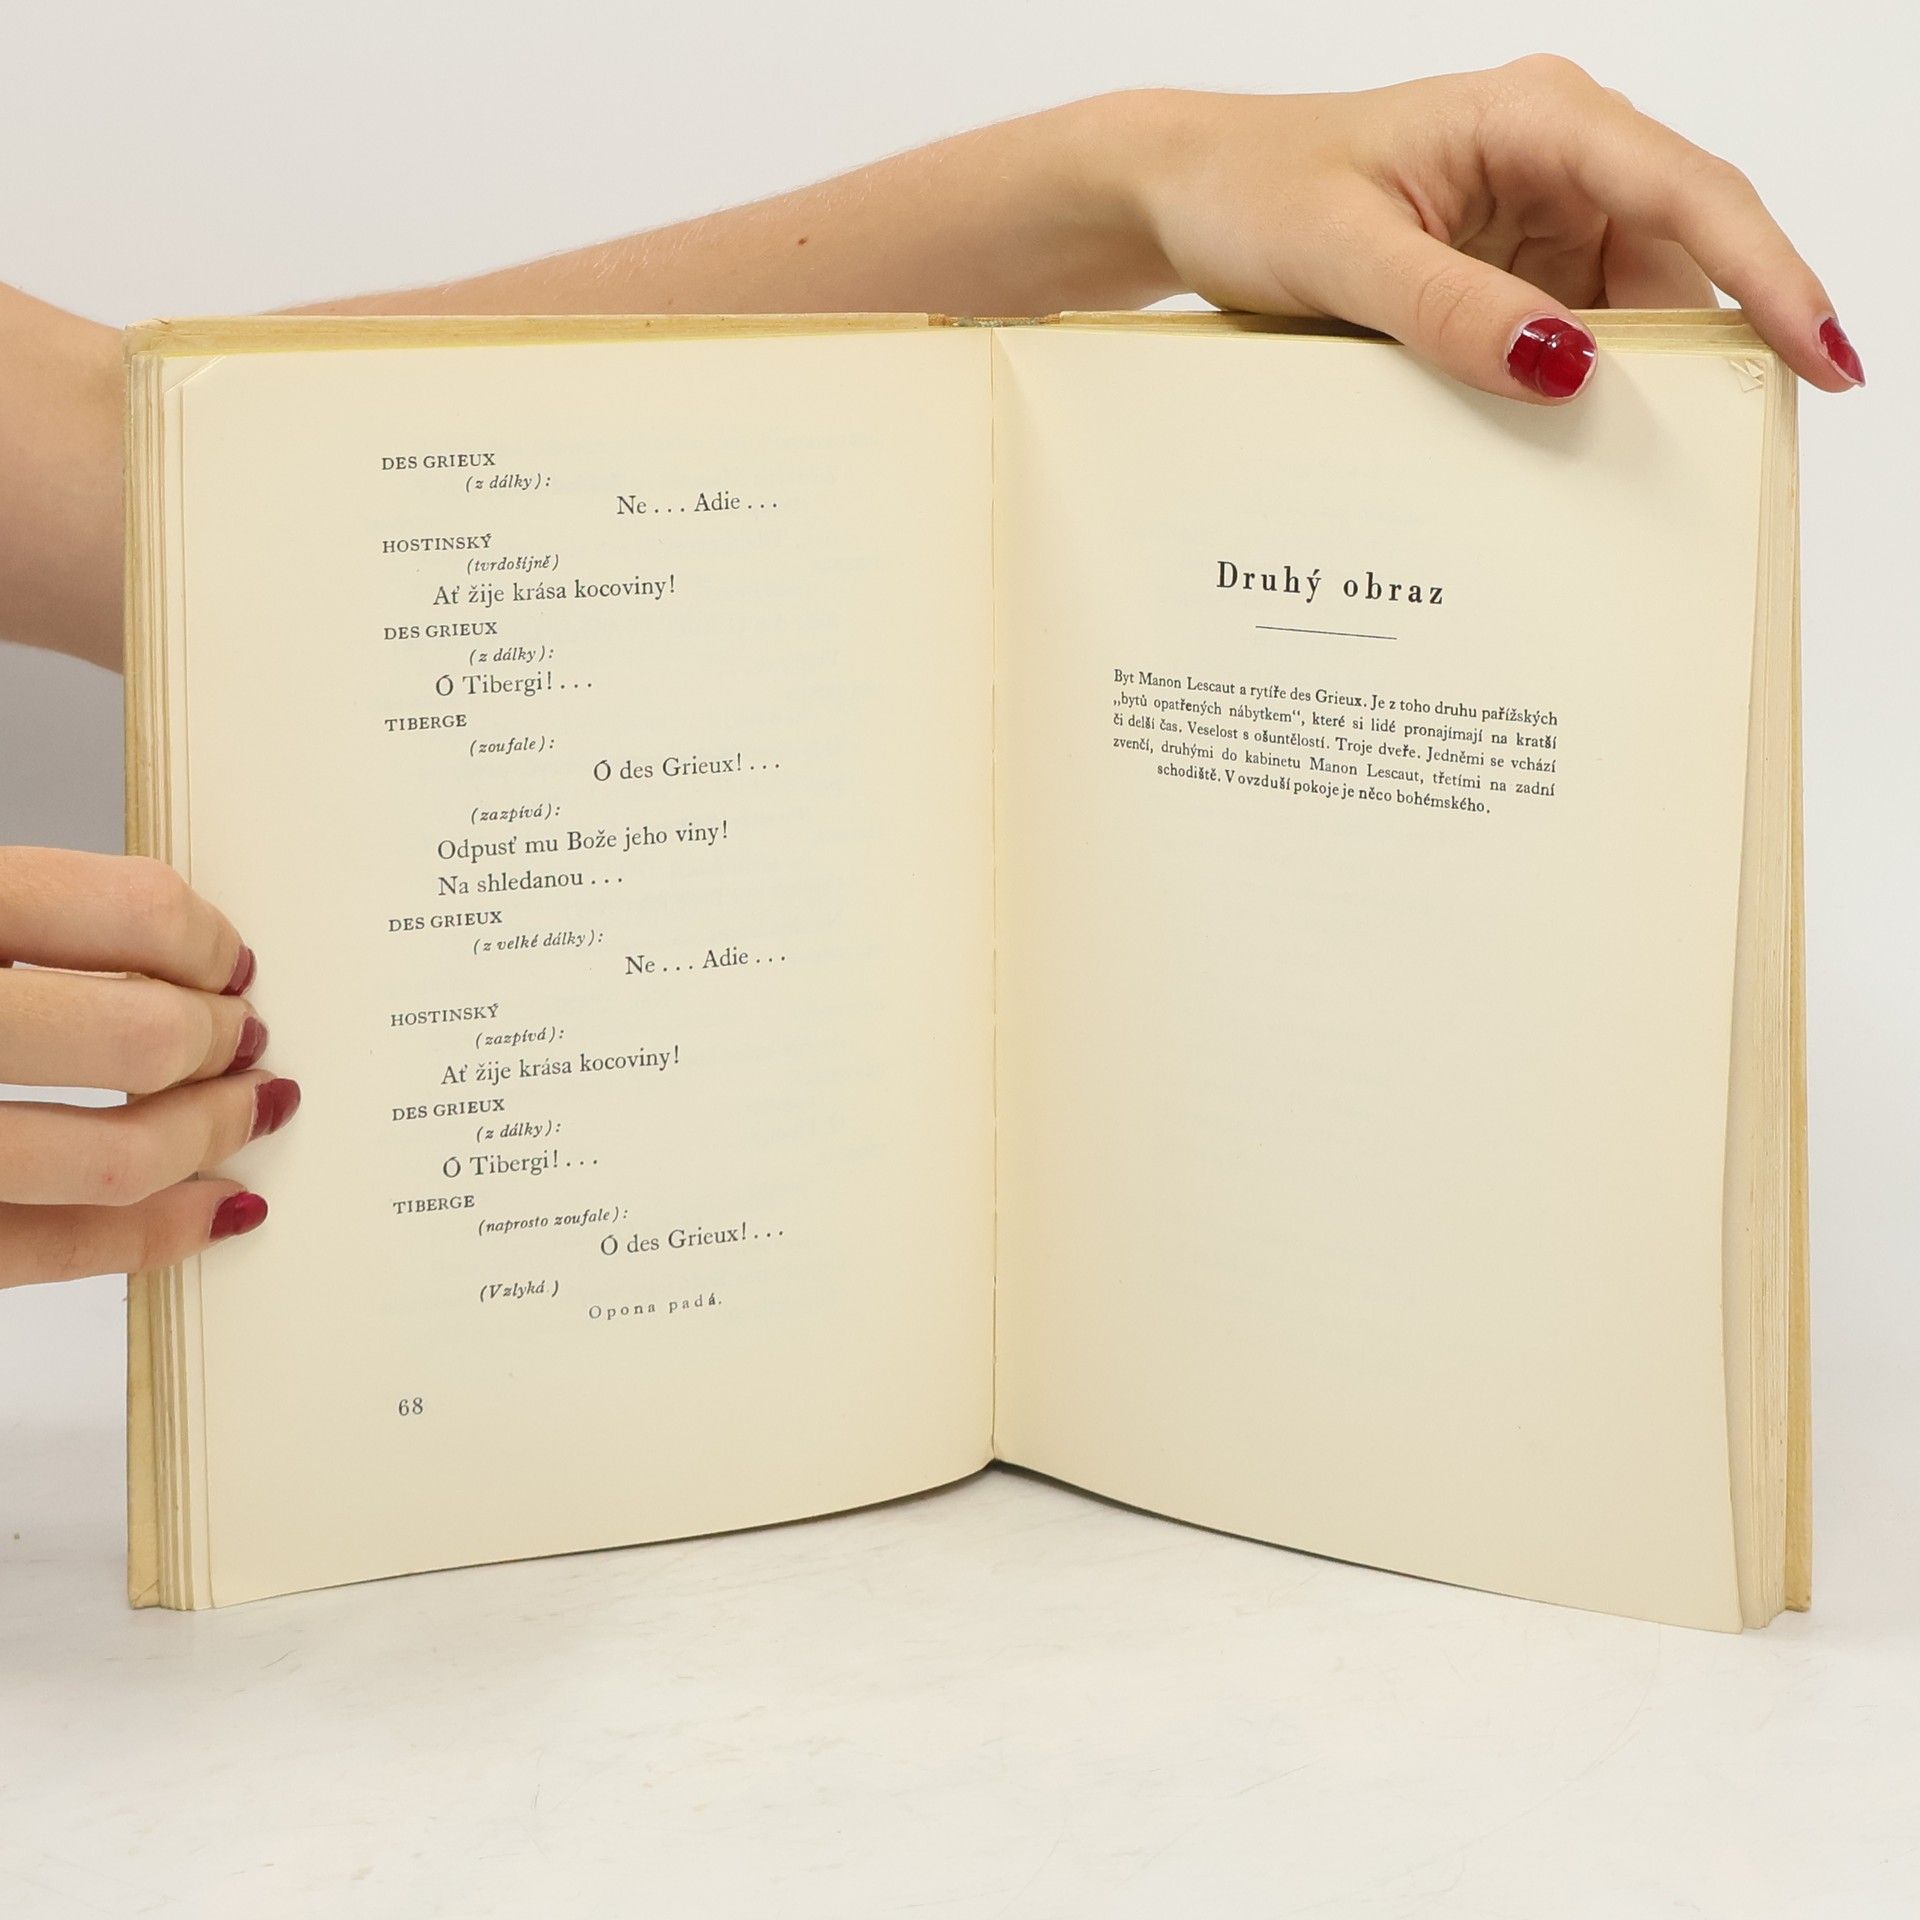 DES GRIEUX
(z dálky):
Ne . . . Adie . . .
HOSTINSKÝ
(tvrdošíjně)
Ať žije krása kocoviny!
DES GRIEUX
(z dálky):
Ó Tibergi! . . .
TIBERGE
(zoufale):
Ó des Grieux! . . .
(zazpívá):
Odpusť mu Bože jeho viny!
Na shledanou . . .
DES GRIEUX
(z velké dálky):
Ne . . . Adie . . .
HOSTINSKÝ
(zazpívá):
Ať žije krása kocoviny!
DES GRIEUX
(z dálky):
Ó Tibergi! . . .
TIBERGE
(naprosto zoufale):
Ó des Grieux! . . .
(Vzlyká.)
Opona padá.
68
Druhý obraz
Byt Manon Lescaut a rytíře des Grieux. Je z toho druhu pařížských
„bytů opatřených nábytkem“, které si lidé pronajímají na kratší
či delší čas. Veselost s ošuntělostí. Troje dveře. Jedněmi se vchází
zvenčí, druhými do kabinetu Manon Lescaut, třetími na zadní
schodiště. V ovzduší pokoje je něco bohémského.